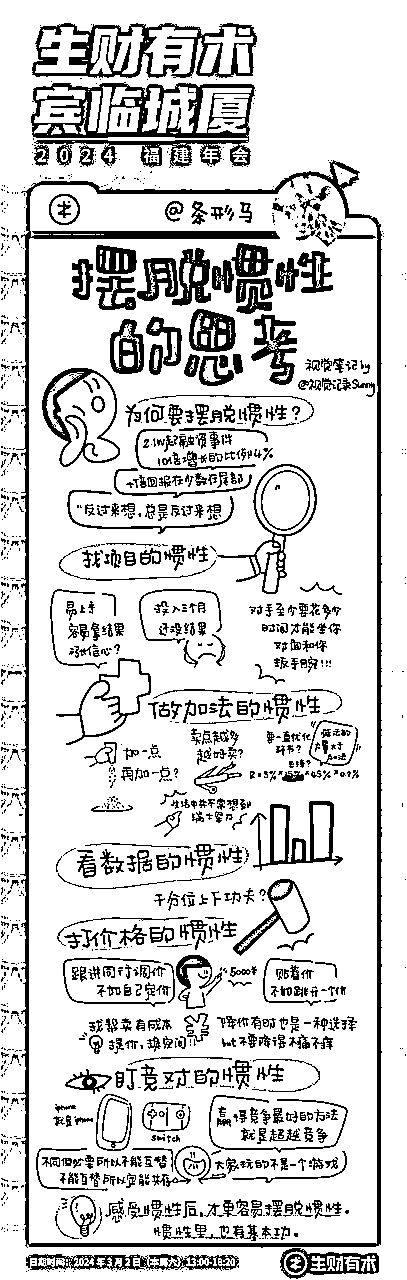 生财有术
宾临城厦
2024 福建年会
@条形马
摆脱惯性
的思考
视觉笔记by
@视觉记录Sunny
为何要摆脱惯性?
2.1W起融资事件
10倍增长的比例4%
+值回报在少数在尾部
“反过来想,总是反过来想
找项目的惯性
易上手
容易拿结果
涨信心?
投入三个月
还没结果
对手至少要花多少
时间才能坐你
对面和你
扳手腕!!!
做加法的惯性
加一点
再加一点?
卖点越多
越好买?
要一直优化
环节?
做法的
力量大于
加法
生活中并不常想到
瑞士军刀
看数据的惯性
千分位上下功夫?
打价格的惯性
跟进同行调价
不如自己定价
5000¥
贴着价
不如跳开一个价
我帮卖有成本
提价,换空间
降价有时也是一种选择
but不要降得不痛不痒
盯竞对的惯性
iphone
就是iphone
switch
赢得竞争最好的方法
就是超越竞争
不同但必要所以不能互替
不能互替所以更能共存
大家玩的不是一个游戏
感受惯性后,才更容易摆脱惯性.
惯性里,也有基本功.
日期时间:2024年3月2日(本周六)13:00-18:20
生财有术